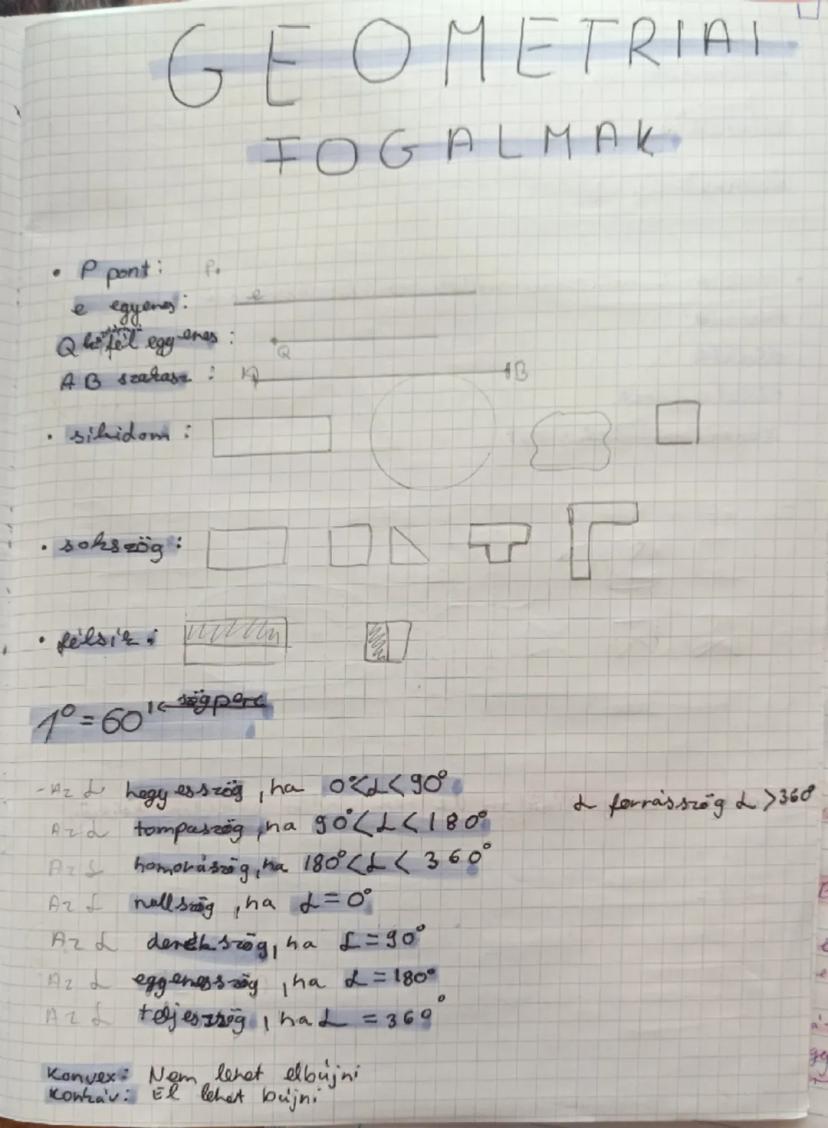 GEOMETRIAI
FOGALMAK
• P pont: P.
e egyenes: e
Q félegyenes: Q
AB szakasz: A B
• síkidom:
• sokszög:
• félsík:
1° = 60' ← szögperc
- Az α hegyesszög, ha 0°<α<90°
α forrásszög α >360°
Az α tompaszög, ha 90°<α<180°
Az α homorúszög, ha 180°<α<360°
Az α nullszög, ha α=0°
Az α derékszög, ha α=90°
Az α egyenesszög, ha α=180°
Az α teljesszög, ha α = 360°
Konvex: Nem lehet elbújni
Konkáv: El lehet bújni